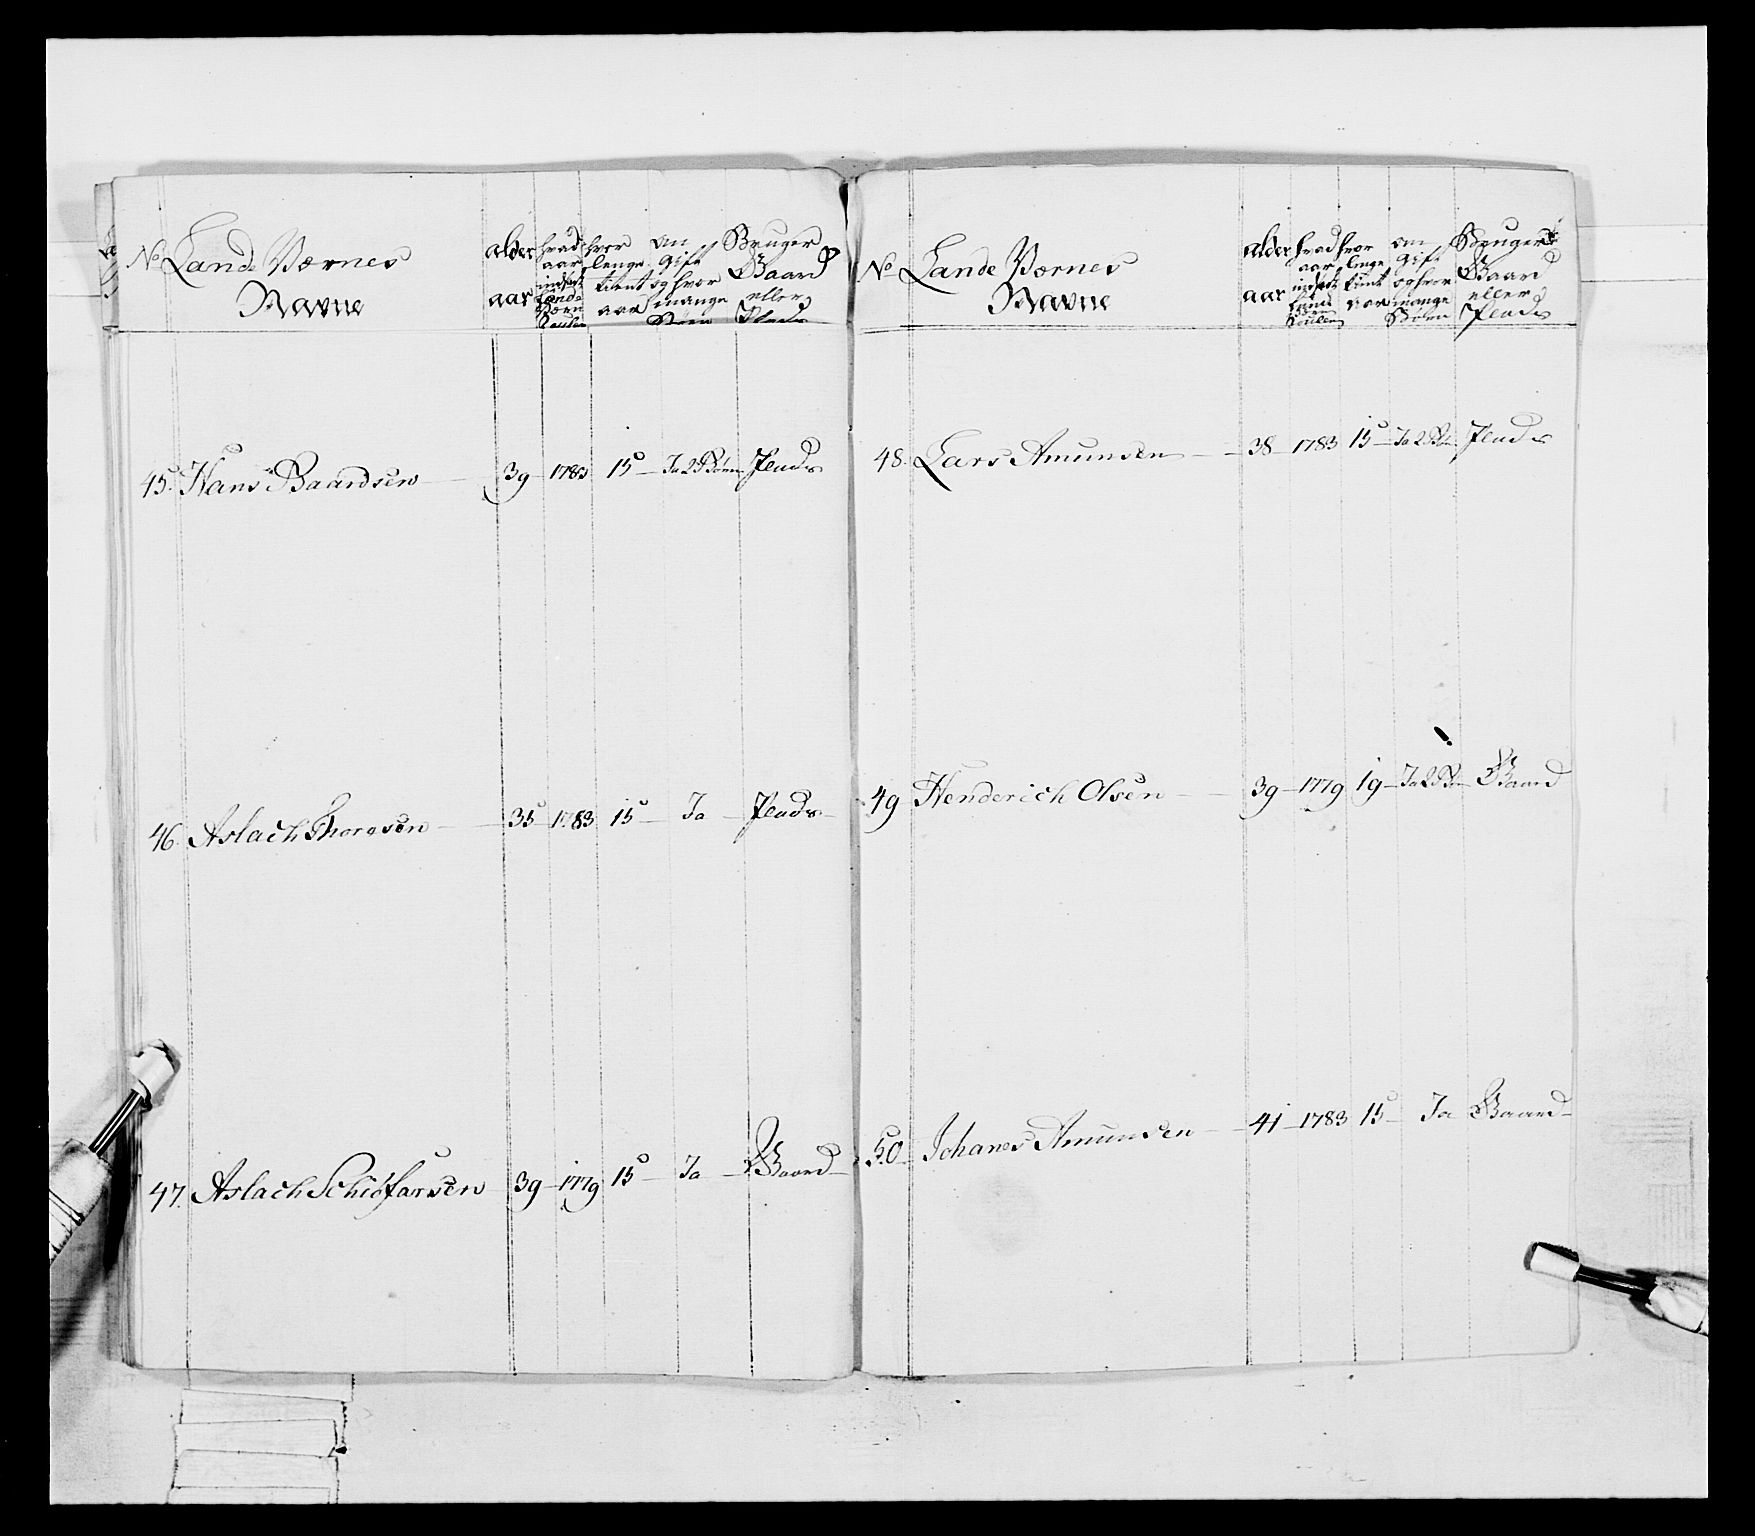 No Lande Værnes Navne
alder aar
hvad aar indsat Lande Værn Roulen
hvor lenge tient aar
om Gift og hvor mange Børn
Bruger Gaard eller Plads
45. Hans Baardsen 39 1783 15 Ja 2 Børn Plads
46. Aslach Thoresen 35 1783 15 Ja Plads
47. Aslach Schiøfarsen 39 1779 15 Ja Gaard
No Lande Værnes Navne
alder aar
hvad aar indsat Land Værn Roulen
hvor lenge tient aar
om Gift og hvor mange Børn
Bruger Gaard eller Plads
48. Lars Amunsen 38 1783 15 Ja 2 Bø Plads
49 Henderich Olsen 39 1779 19 Ja 2 Bø Gaard
50 Johanes Amunsen 41 1783 15 Ja Gaard